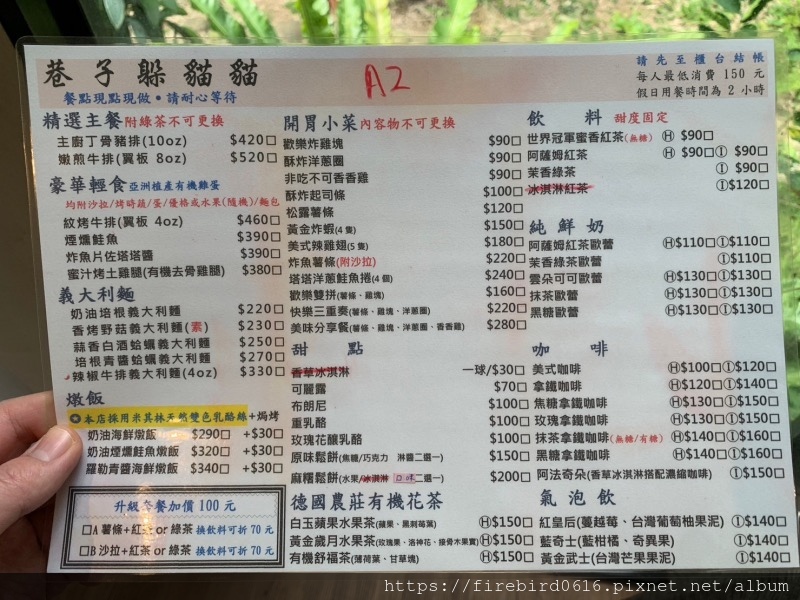 巷子躲貓貓
餐點現點現做•請耐心等待
A2
請先至櫃台結帳
每人最低消費 150 元
假日用餐時間為 2 小時
精選主餐附綠茶不可更換
主廚丁骨豬排(10oz) $420□
嫩煎牛排(翼板 8oz) $520□
豪華輕食亞洲植產有機雞蛋
均附沙拉/烤時蔬/蛋/優格或水果(隨機)/麵包
紋烤牛排(翼板 4oz) $460□
煙燻鮭魚 $390□
炸魚片佐塔塔醬 $390□
蜜汁烤土雞腿(有機去骨雞腿) $380□
義大利麵
奶油培根義大利麵 $220□
香烤野菇義大利麵(素) $230□
蒜香白酒蛤蠣義大利麵 $250□
培根青醬蛤蠣義大利麵 $270□
辣椒牛排義大利麵(4oz) $330□
燉飯
✪本店採用米其林天然雙色乳酪絲+焗烤
奶油海鮮燉飯 $290□ +$30□
奶油煙燻鮭魚燉飯 $320□ +$30□
羅勒青醬海鮮燉飯 $340□ +$30□
升級套餐加價 100 元
□A 薯條+紅茶 or 綠茶 換飲料可折 70 元
□B 沙拉+紅茶 or 綠茶 換飲料可折 70 元
開胃小菜內容物不可更換
歡樂炸雞塊 $90□
酥炸洋蔥圈 $90□
非吃不可香香雞 $90□
酥炸起司條 $100□
松露薯條 $120□
黃金炸蝦(4隻) $150□
美式辣雞翅(5隻) $180□
炸魚薯條(附沙拉) $220□
塔塔洋蔥鮭魚捲(4個) $240□
歡樂雙拼(薯條、雞塊) $160□
快樂三重奏(薯條、雞塊、洋蔥圈) $220□
美味分享餐(薯條、雞塊、洋蔥圈、香香雞) $280□
甜點
香草冰淇淋 一球/$30□
可麗露 $70□
布朗尼 $100□
重乳酪 $100□
玫瑰花釀乳酪 $100□
原味鬆餅(焦糖/巧克力 淋醬二選一) $150□
麻糬鬆餅(水果/冰淇淋 口味二選一) $200□
德國農莊有機花茶
白玉蘋果水果茶(蘋果、黑刺莓葉) Ⓗ$150□
黃金歲月水果茶(玫瑰果、洛神花、接骨木果實) Ⓗ$150□
有機舒福茶(薄荷葉、甘草塊) Ⓗ$150□
飲料 甜度固定
世界冠軍蜜香紅茶(無糖) Ⓗ $90□
阿薩姆紅茶 Ⓗ $90□Ⓘ $90□
茉香綠茶 Ⓘ $90□
冰淇淋紅茶 Ⓘ$120□
純鮮奶
阿薩姆紅茶歐蕾 Ⓗ$110□Ⓘ$110□
茉香綠茶歐蕾 Ⓘ$110□
雲朵可可歐蕾 Ⓗ$130□Ⓘ$130□
抹茶歐蕾 Ⓗ$130□Ⓘ$130□
黑糖歐蕾 Ⓗ$130□Ⓘ$130□
咖啡
美式咖啡 Ⓗ$100□Ⓘ$120□
拿鐵咖啡 Ⓗ$120□Ⓘ$140□
焦糖拿鐵咖啡 Ⓗ$130□Ⓘ$150□
玫瑰拿鐵咖啡 Ⓗ$130□Ⓘ$150□
抹茶拿鐵咖啡(無糖/有糖) Ⓗ$140□Ⓘ$160□
黑糖拿鐵咖啡 Ⓗ$140□Ⓘ$160□
阿法奇朵(香草冰淇淋搭配濃縮咖啡) Ⓘ$150□
氣泡飲
紅皇后(蔓越莓、台灣葡萄柚果泥) Ⓘ$140□
藍奇士(藍柑橘、奇異果) Ⓘ$140□
黃金武士(台灣芒果果泥) Ⓘ$140□
https://firebird0616.pixnet.net/album